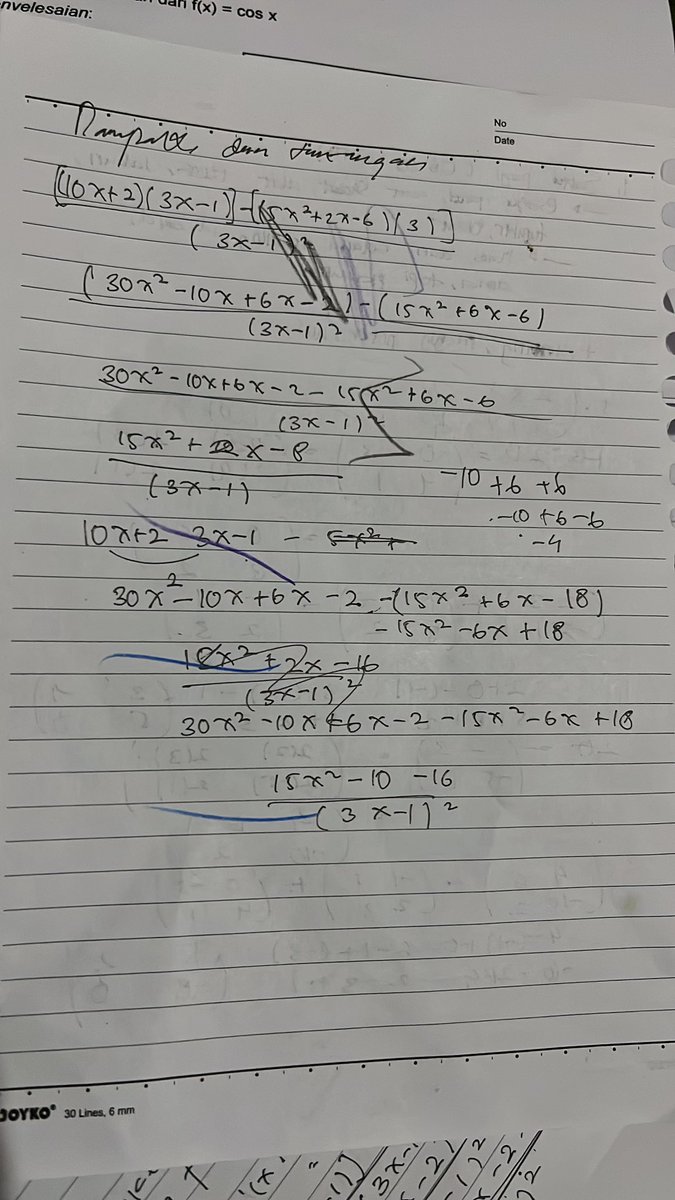 nyelesaian:
dan f(x) = cos x
No
Date
dan
[(10x+2)(3x-1)]-[(5x²+2x-6)(3)]
(3x-1)²
(30x²-10x+6x-2)-(15x²+6x-6)
(3x-1)²
30x²-10x+6x-2-15x²+6x-6
(3x-1)²
15x²+2x-8
(3x-1)
-10+6+6
-10+6-6
-4
10x+2 3x-1 - 5x²+
30x²-10x+6x-2-(15x²+6x-18)
-15x²-6x+18
x²+2x-16
(3x-1)²
30x²-10x+6x-2-15x²-6x+18
15x²-10-16
(3x-1)²
JOYKO® 30 Lines, 6 mm